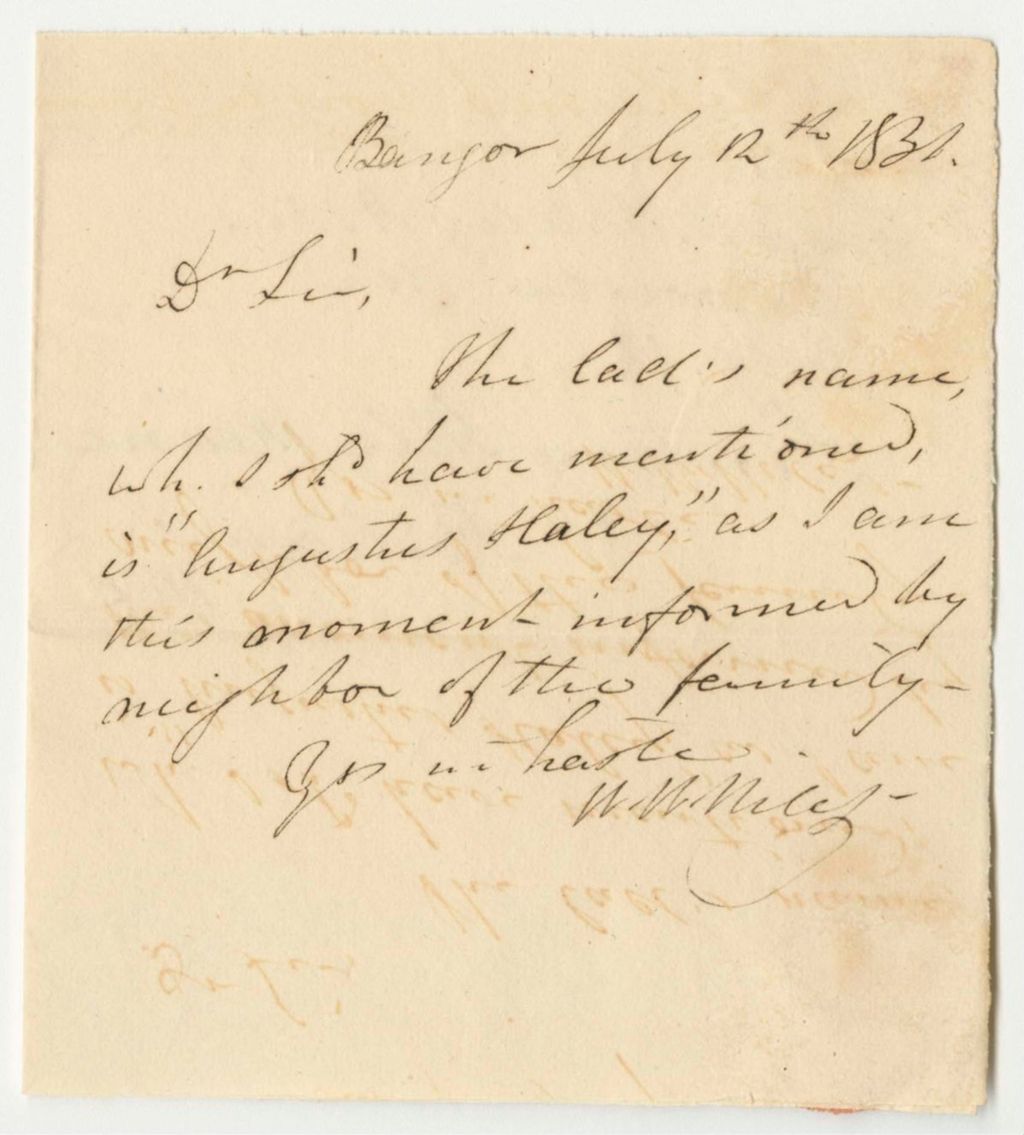 Bangor July 12th 1831.
Dr Sir,
The lad's name,
wh. I shd have mentioned,
is "Augustus Haley," as I am
this moment informed by
neighbor of the family -
Yrs in haste.
W. W.